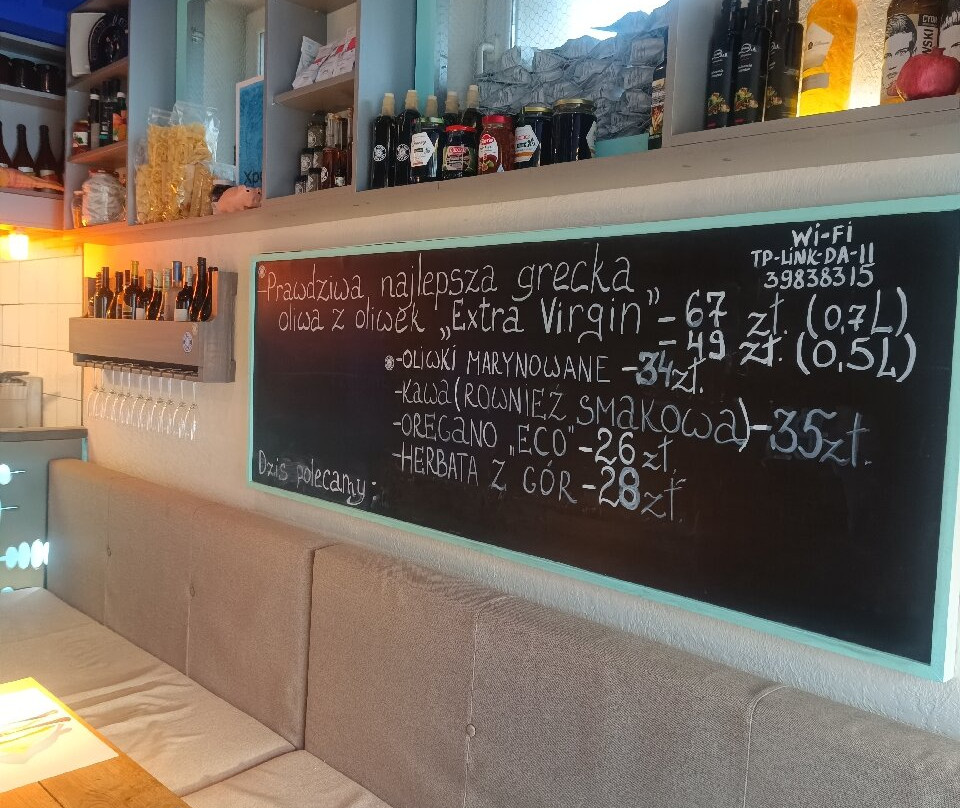 Wi-Fi
TP-LINK-DA-11
39838315
-Prawdziwa najlepsza grecka
oliwa z oliwek „Extra Virgin” - 67 zł. (0,7L)
- 49 zł. (0,5L)
-OLIWKI MARYNOWANE -34zł.
-KAWA (RÓWNIEŻ SMAKOWA)-35zł.
-OREGANO „ECO” -26 zł.
-HERBATA Z GÓR -28zł.
Dziś polecamy: